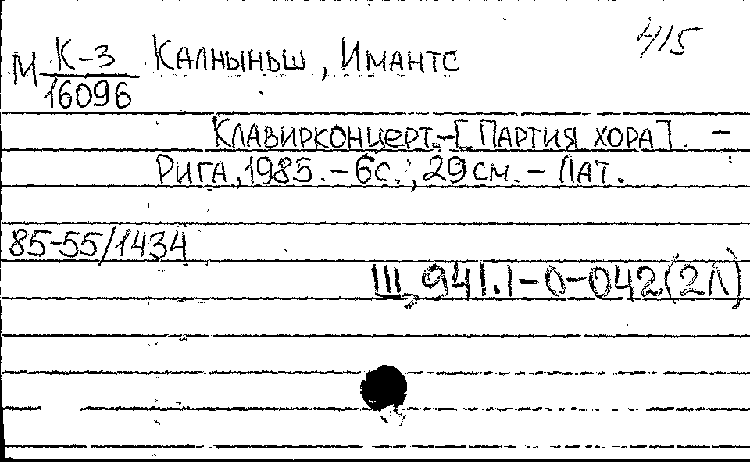 415
М К-3 Калныньш, Имантс
16096
Клавирконцерт.-[Партия хора]. -
Рига, 1985. - 6с.; 29см. - Лат.
85-55/1434
III, 941.1-0-042(2Л)